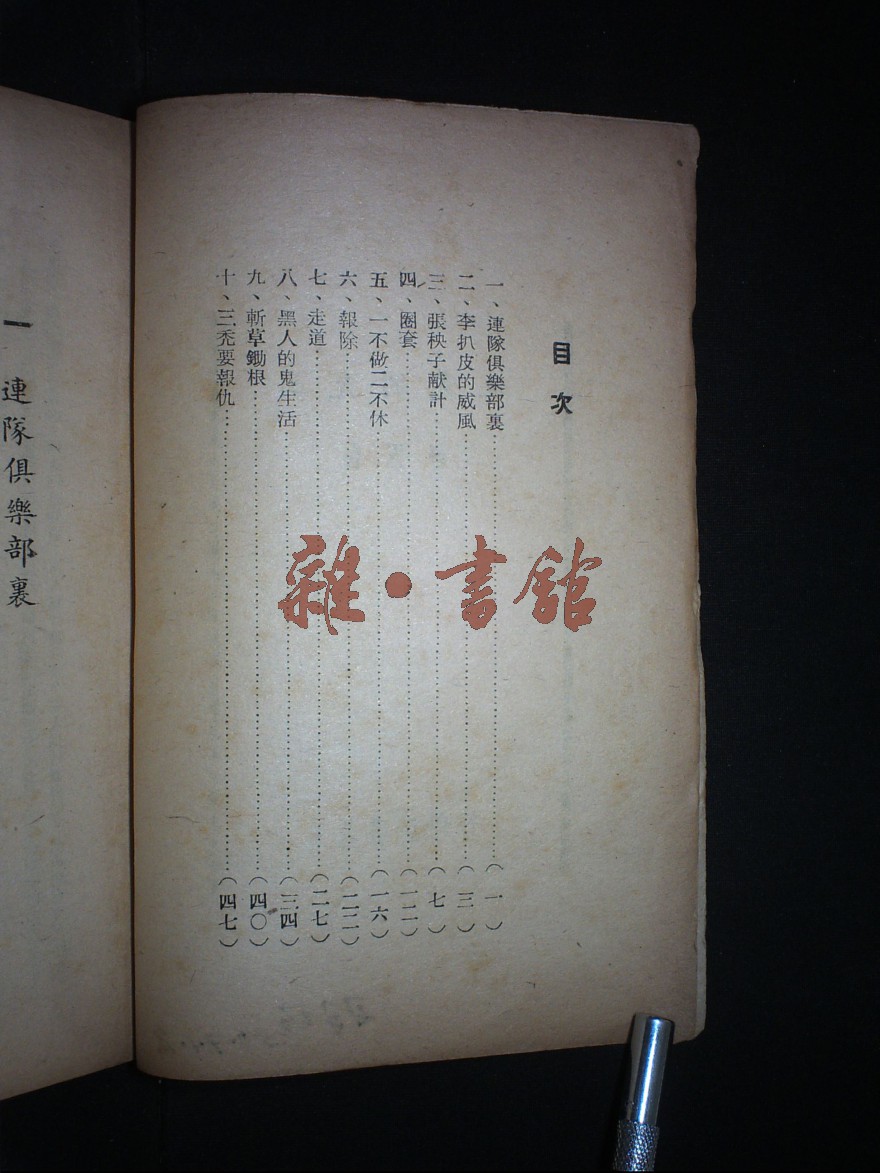 目次
一、連隊俱樂部裏……(一)
二、李扒皮的威風……(三)
三、張秧子献計……(七)
四、圈套……(一二)
五、一不做二不休……(一六)
六、報除……(二二)
七、走道……(二七)
八、黑人的鬼生活……(三四)
九、斬草鋤根……(四〇)
十、三禿要報仇……(四七)
一 連隊俱樂部裏
雜·書館